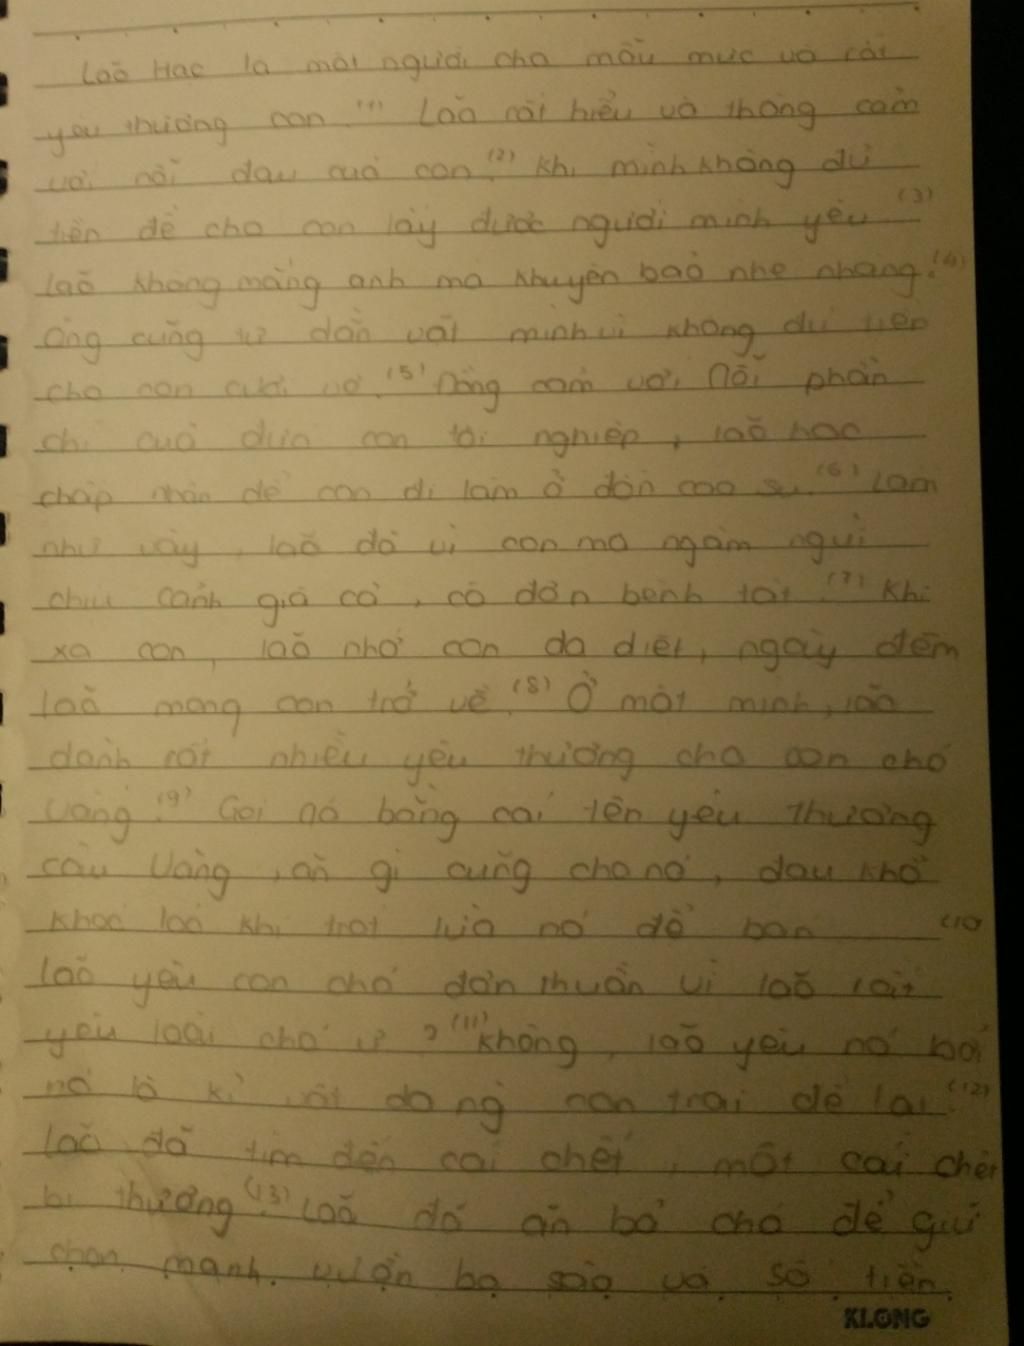 Lão Hạc là một người cha mẫu mực và rất
yêu thương con.(1) Lão rất hiểu và thông cảm
với nỗi đau của con.(2) Khi mình không đủ
tiền để cho con lấy được người mình yêu (3)
lão không mắng anh mà khuyên bảo nhẹ nhàng.(4)
Ông cũng tự dằn vặt mình vì không đủ tiền
cho con cưới vợ.(5) Đồng cảm với nỗi phẫn
chí của đứa con tội nghiệp, lão Hạc
chấp nhận để con đi làm ở đồn cao su.(6) Làm
như vậy, lão đã vì con mà ngậm ngùi
chịu cảnh già cả, cô đơn bệnh tật.(7) Khi
xa con, lão nhớ con da diết, ngày đêm
lão mong con trở về.(8) Ở một mình, lão
dành rất nhiều yêu thương cho con chó
Vàng.(9) Gọi nó bằng cái tên yêu thương
cậu Vàng, ăn gì cũng cho nó, đau khổ
khóc lóc khi trót lừa nó để bán (10
lão yêu con chó đơn thuần vì lão rất
yêu loài chó ư ?(11) Không, lão yêu nó bởi
nó là kỉ vật do ng con trai để lại.(12)
Lão đã tìm đến cái chết, một cái chết
bi thương.(13) Lão đã ăn bả chó để giữ
chọn mảnh vườn ba sào và số tiền
KLONG